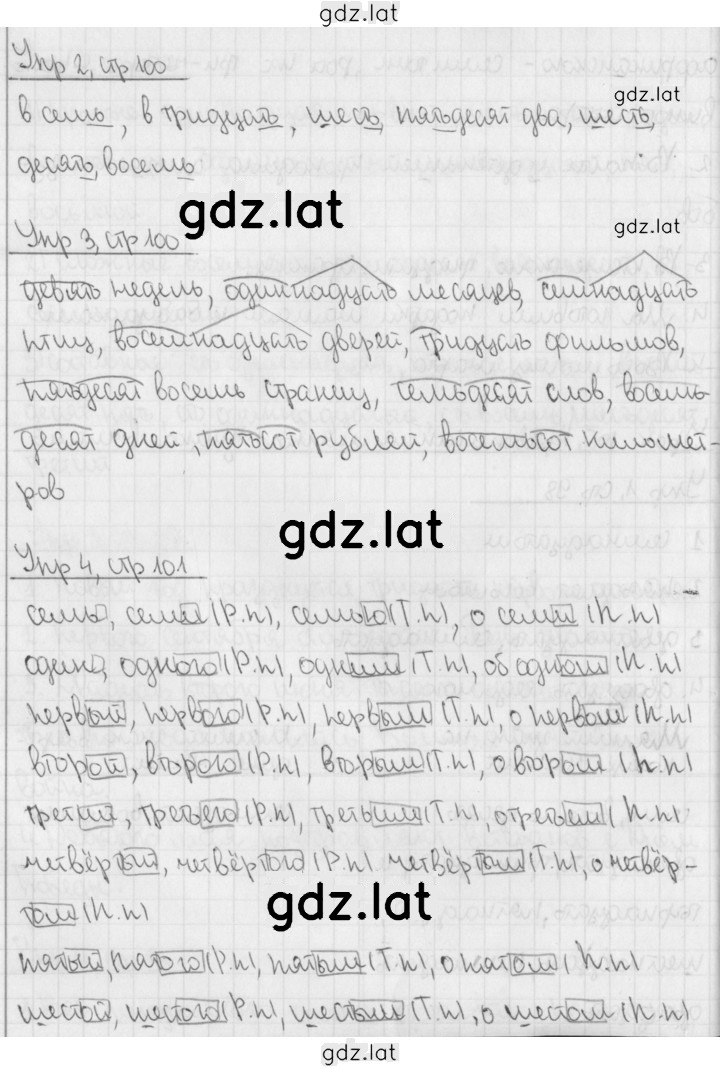 gdz.lat
Упр 2, стр 100
gdz.lat
в семь, в тридцать, шесть, пятьдесят два, шесть,
десять, восемь
gdz.lat
Упр 3, стр 100
gdz.lat
девять недель, одиннадцать месяцев, семнадцать
птиц, восемнадцать дверей, тридцать фильмов,
пятьдесят восемь страниц, семьдесят слов, восемь-
десят дней, пятьсот рублей, восемьсот километ-
ров
gdz.lat
Упр 4, стр 101
семь, семи (Р.п), семью (Т.п), о семи (П.п)
один, одного (Р.п), одним (Т.п), об одном (П.п)
первый, первого (Р.п), первым (Т.п), о первом (П.п)
второй, второго (Р.п), вторым (Т.п), о втором (П.п)
третий, третьего (Р.п), третьим (Т.п), о третьем (П.п)
четвёртый, четвёртого (Р.п), четвёртым (Т.п), о четвёр-
том (П.п)
gdz.lat
пятый, пятого (Р.п), пятым (Т.п), о пятом (П.п)
шестой, шестого (Р.п), шестым (Т.п), о шестом (П.п)
gdz.lat